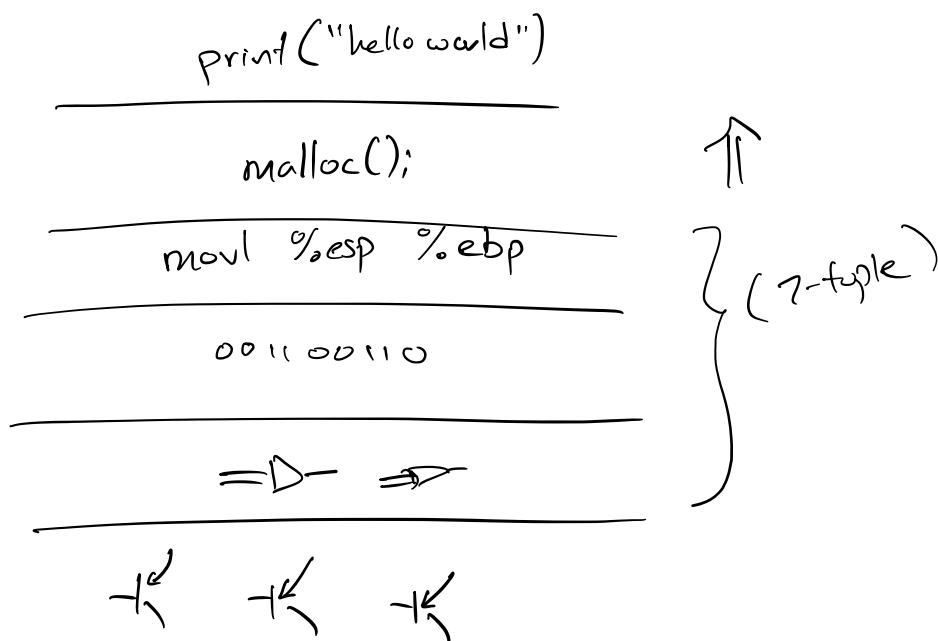 print("hello world")
malloc();
movl %esp %ebp
001100110
(7-tuple)